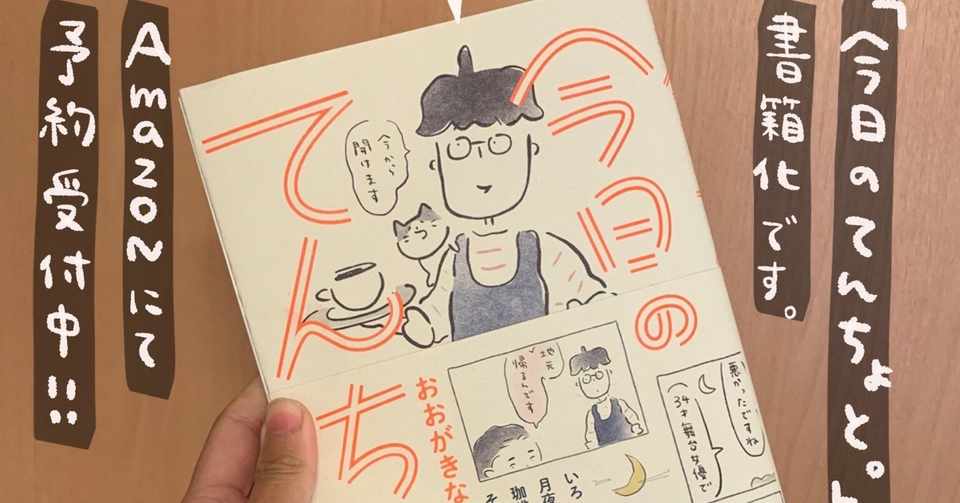 「今日のてんちょと。」
書籍化です。
Amazonにて
予約受付中!!
今日の
てんち
今から
開けます
おおがきな
地元
帰るんです
悪かったですね
34才舞台女優で
いろ
月夜
珈
そ